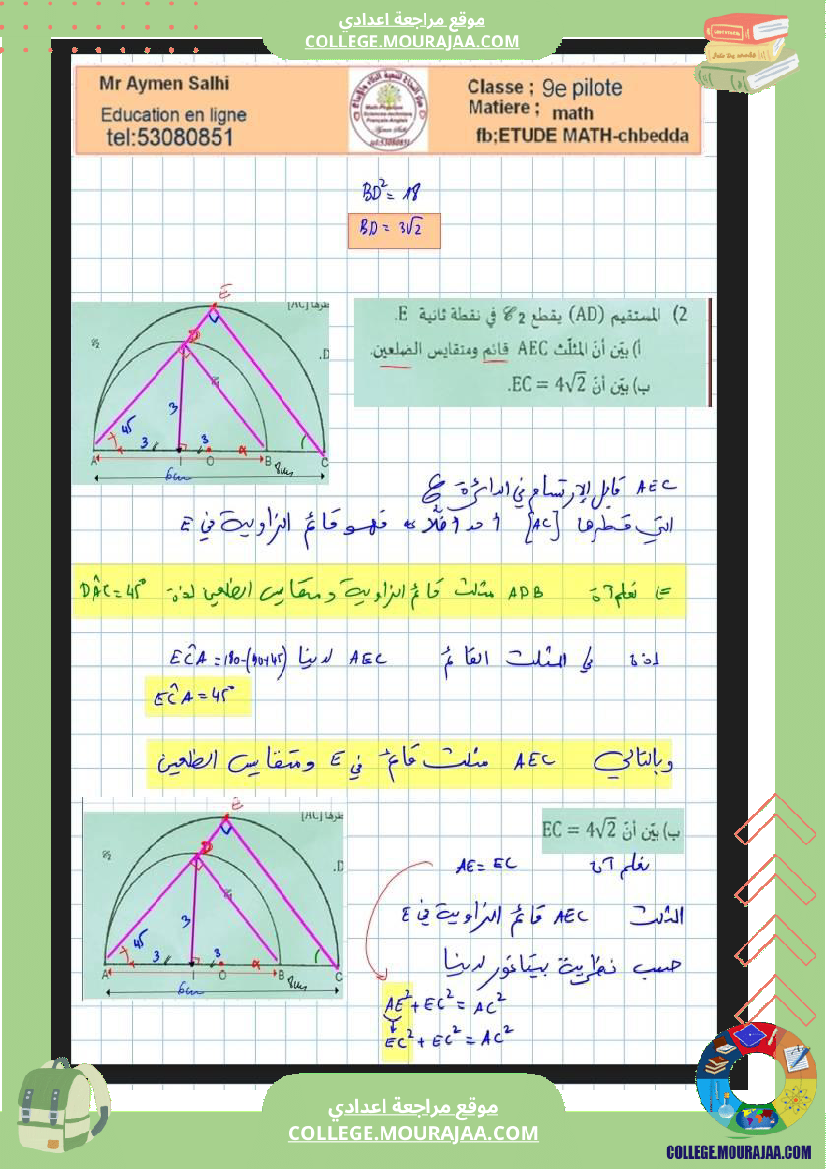 موقع مراجعة اعدادي
COLLEGE.MOURAJAA.COM
Mr Aymen Salhi
Education en ligne
tel:53080851
Classe ; 9e pilote
Matiere ; math
fb;ETUDE MATH-chbedda
BD² = 18
BD = 3√2
2) المستقيم (AD) يقطع 𝒞2 في نقطة ثانية E.
أ) بيّن أنّ المثلّث AEC قائم ومتقايس الضلعين.
ب) بيّن أنّ EC = 4√2.
E
[AC]
D
.D
45
3
3
3
A
I
O
B
C
6cm
8cm
AEC قابل الإرتسام في الدائرة
التي قطرها [AC] أحد أضلاعه فهو قائم الزاوية في E
نعلم أن ADB مثلث قائم الزاوية ومتقايس الضلعين إذن DÂC = 45°
إذن في المثلث القائم AEC لدينا EĈA = 180-(90+45)
EĈA = 45°
وبالتالي AEC مثلث قائم في E ومتقايس الضلعين
E
[AC]
D
.D
45
3
3
3
A
I
O
B
C
6cm
8cm
ب) بيّن أنّ EC = 4√2
نعلم أن AE = EC
المثلث AEC قائم الزاوية في E
حسب نظرية بيتاغور لدينا
AE² + EC² = AC²
EC² + EC² = AC²
موقع مراجعة اعدادي
COLLEGE.MOURAJAA.COM
COLLEGE.MOURAJAA.COM